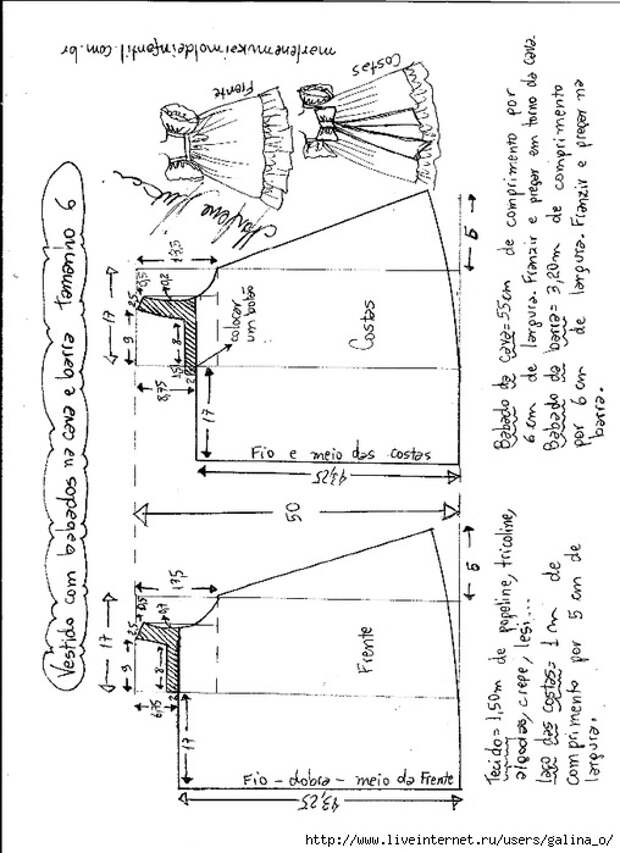 marlenemukaimoldeinfantil.com.br
Vestido com babados na cava e barra tamanho 6
Frente
Costas
17
9
2,5
0,5
0,2
8
1,5
2
8,75
colocar
um botão
Costas
17
Fio e meio das costas
43,25
5
50
17
9
2,5
0,5
0,7
8
2
6,75
17,5
Frente
17
Fio - dobra - meio da Frente
43,25
5
Babado da cava = 55cm de comprimento por
6 cm de largura. Franzir e pregar em torno da cava.
Babado da barra = 3,20m de comprimento
por 6 cm de largura. Franzir e pregar na
barra.
Tecido = 1,50m de popeline, tricoline,
algodão, crepe, lesi...
laço das costas = 1 m de
comprimento por 5 cm de
largura.
http://www.liveinternet.ru/users/galina_o/